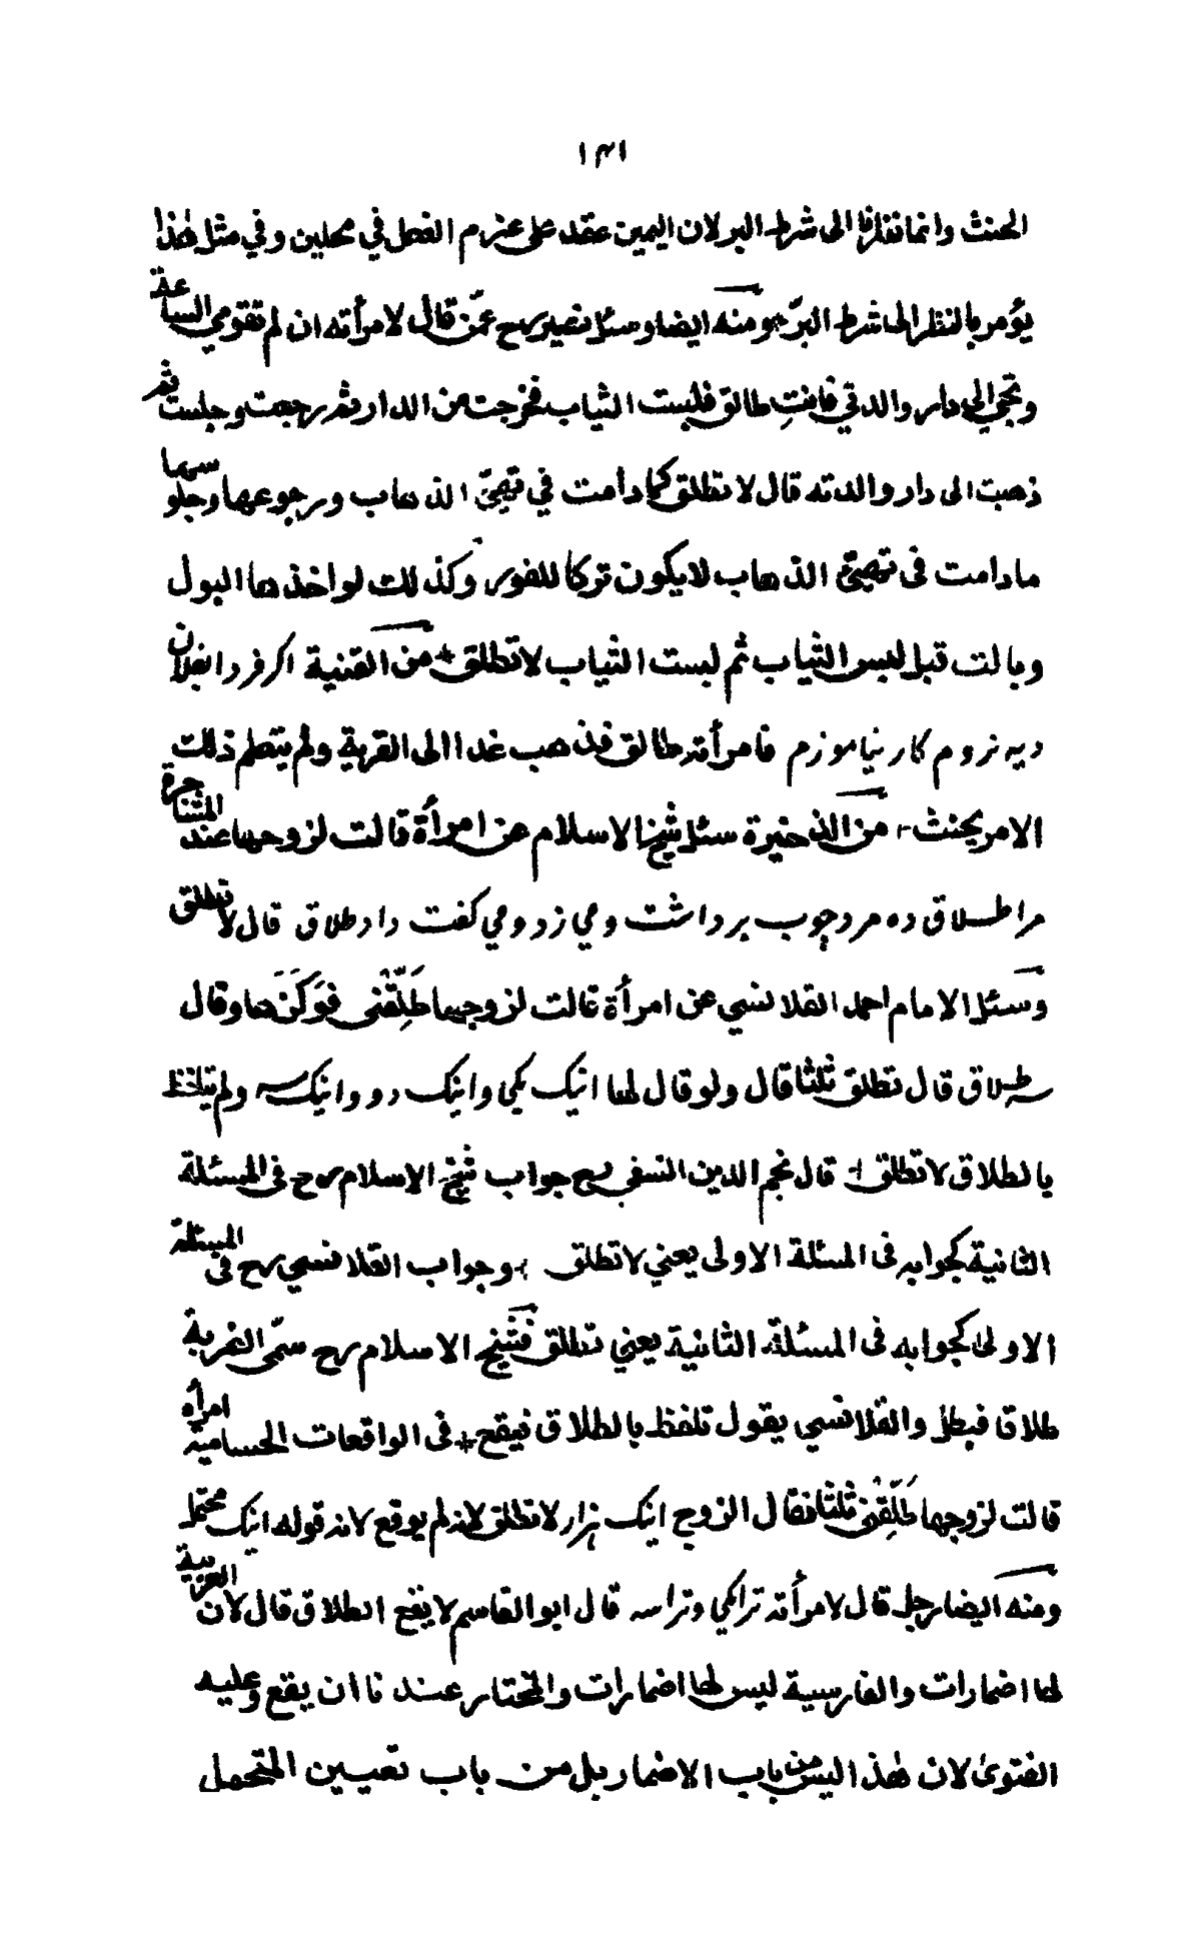 ١٣١
الحنث وانما نظرنا الى شرط البر لان اليمين عقد على عزم الفعل في محلين وفي مثل هذا
يؤمر بالنظر الى شرط البرّ ومنه ايضا وسئل نصير رح عمّن قال لامرأته ان لم تقومي الساعة
وتجي الى دار والدتي فانتِ طالق فلبست الثياب فخرجت من الدار ثم رجعت وجلست ثم
ذهبت الى دار والدته قال لا تطلق كما دامت في تهيّئ الذهاب ورجوعها وجلوسها
مادامت فى تهيئ الذهاب لا يكون تركا للفور وكذلك لو اخذها البول
وبالت قبل لبس الثياب ثم لبست الثياب لا تطلق من القنية اكر فردا بفلان
ديه نروم كار نياموزم فامرأته طالق فذهب غدا الى القرية ولم يتعلم ذلك
الامر يحنث من الذخيرة سئل شيخ الاسلام عن امرأة قالت لزوجها عند المشاجرة
مرا طلاق ده مرد چوب برداشت ومي زد ومي كفت دار طلاق قال لا تطلق
وسئل الامام احمد القلانسي عن امرأة قالت لزوجها طَلِّقْنى فَوَكَزَها وقال
طلاق قال تطلق ثلثا قال ولو قال لها اينك يكي واينك دو واينك سه ولم يتلفظ
بالطلاق لا تطلق قال نجم الدين النسفي رح جواب شيخ الاسلام رح فى المسئلة
الثانية كجوابه فى المسئلة الاولى يعني لا تطلق وجواب القلانسي رح فى المسئلة
الاولى كجوابه فى المسئلة الثانية يعني تطلق فشيخ الاسلام رح سمّى الضربة
طلاق فبطل والقلانسي يقول تلفظ بالطلاق فيقع فى الواقعات الحسامية امرأه
قالت لزوجها طَلِّقْنى ثلثا فقال الزوج اينك هزار لا تطلق لانه لم يوقع لانه قوله اينك محتمل
ومنه ايضا رجل قال لامرأته ترا يكي وترا سه قال ابو القاسم لا يقع الطلاق قال لان العربية
لها اضمارات والفارسية ليس لها اضمارات والمختار عندنا ان يقع وعليه
الفتوى لان هذا ليس من باب الاضمار بل من باب تعيين المتحمل